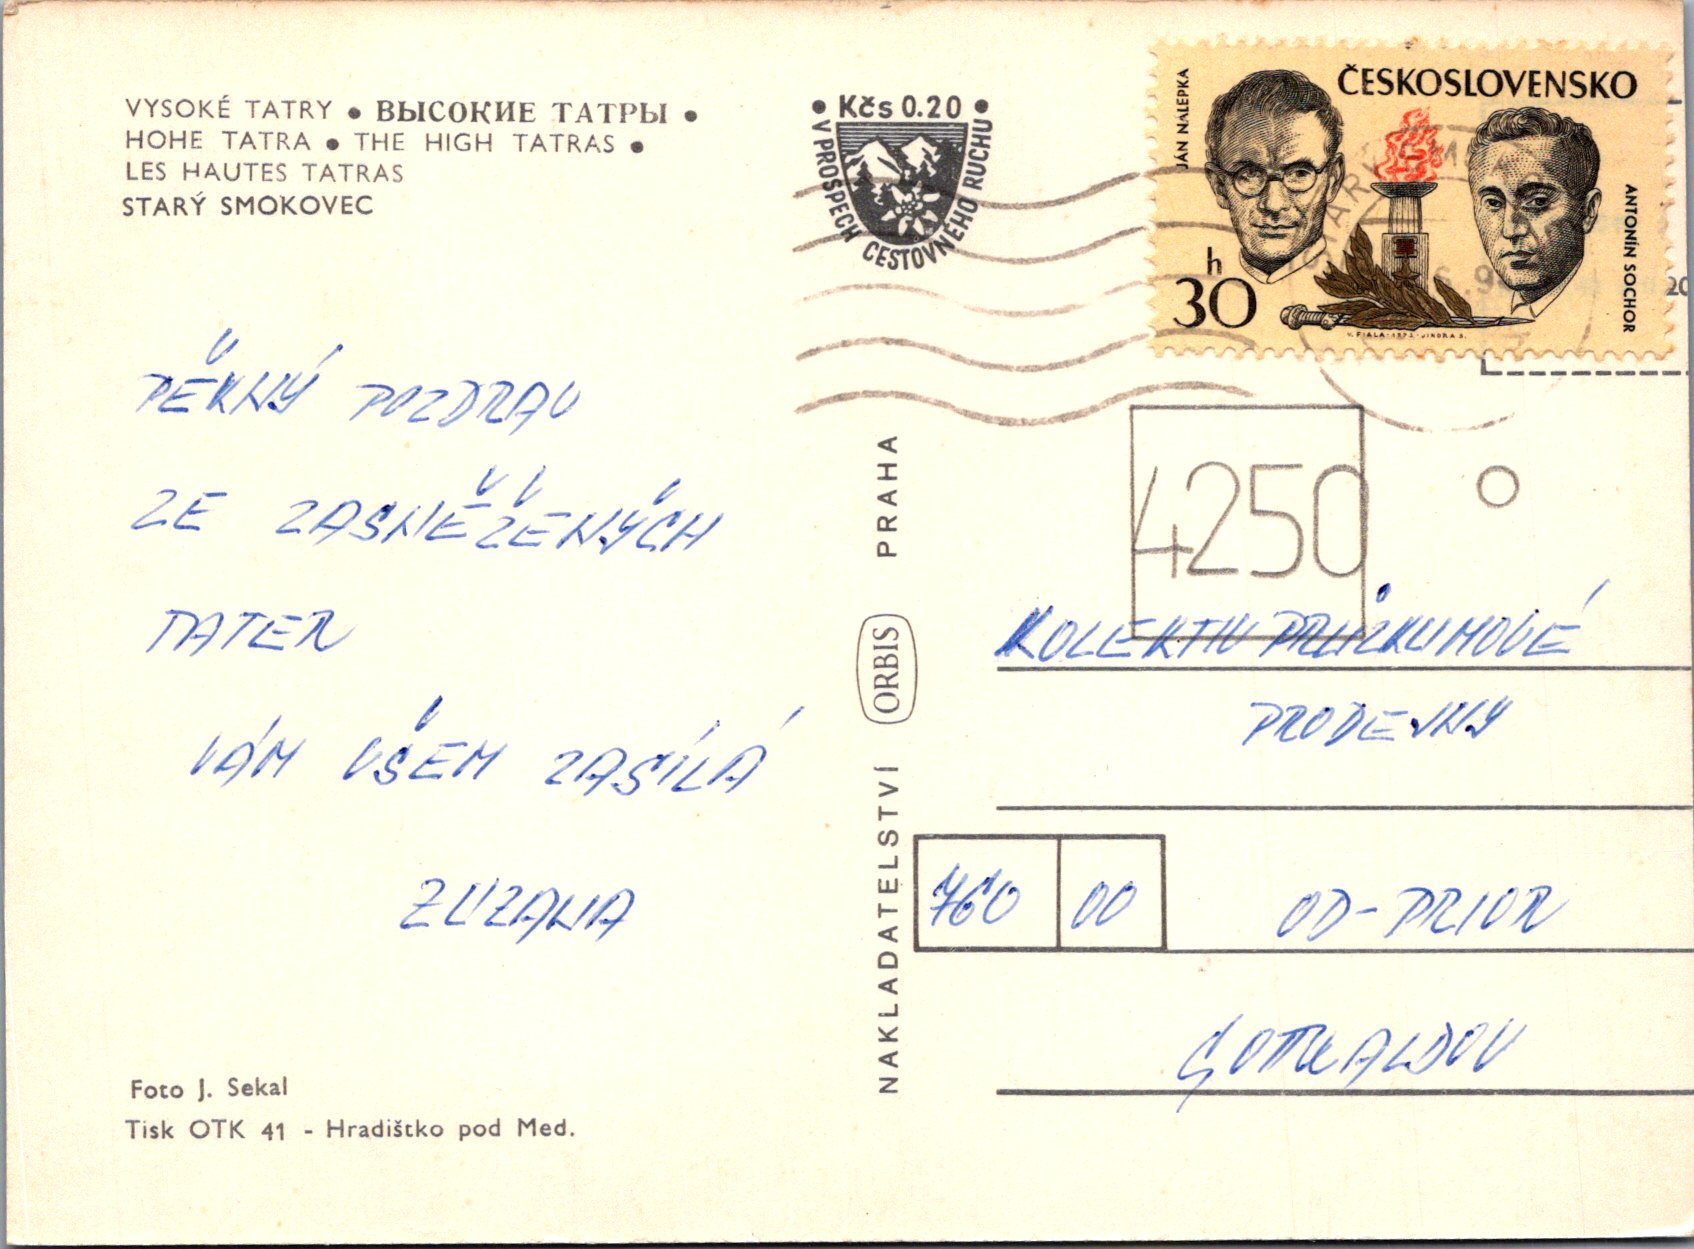 VYSOKÉ TATRY • ВЫСОКИЕ ТАТРЫ •
HOHE TATRA • THE HIGH TATRAS •
LES HAUTES TATRAS
STARÝ SMOKOVEC
• Kčs 0.20 •
V PROSPECH CESTOVNÉHO RUCHU
JÁN NÁLEPKA
ČESKOSLOVENSKO
ANTONÍN SOCHOR
30 h
V. FIALA · 1973 · JINDRA S.
20
PĚKNÝ POZDRAV
ZE ZASNĚŽENÝCH
TATER
VÁM VŠEM ZASÍLÁ
ZUZANA
Foto J. Sekal
Tisk OTK 41 - Hradištko pod Med.
NAKLADATELSTVÍ ORBIS PRAHA
4250
KOLEKTIV PRŮZKUMOVÉ
PRODEJNY
760 00 OD-PRIOR
GOTTWALDOV